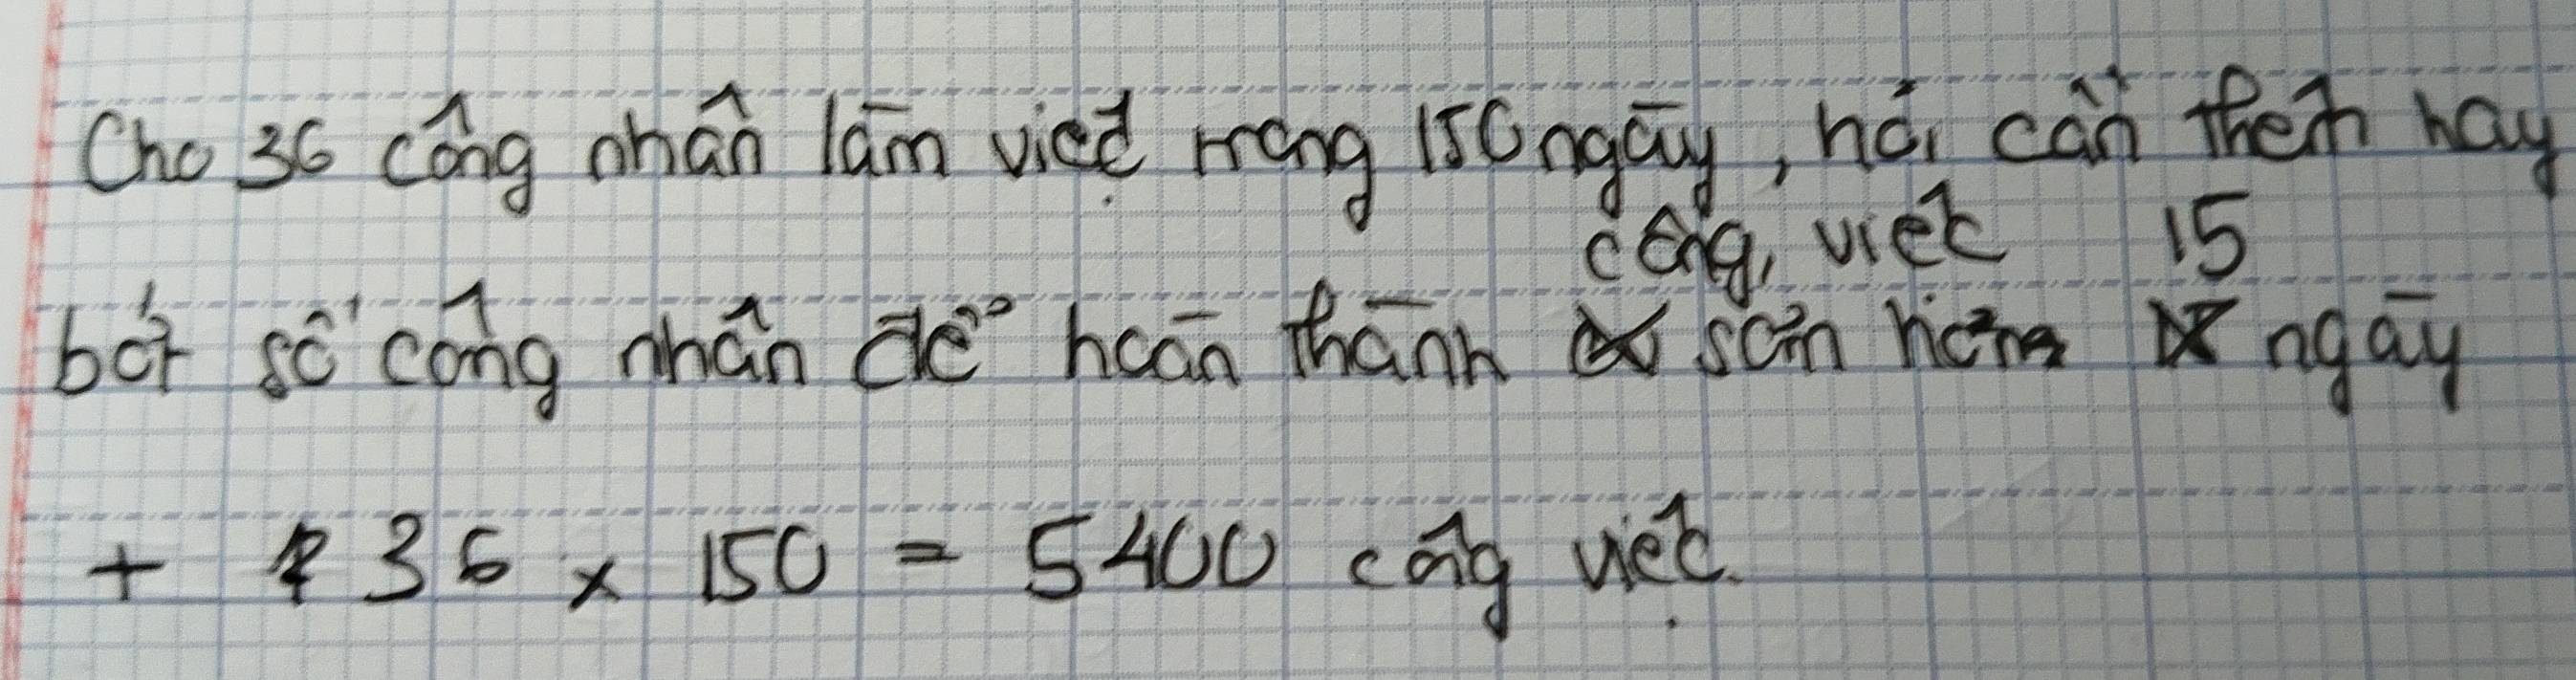 Cho 36 công nhân làm việc trong 150 ngày, hỏi cần thêm hay
công việc 15
bớt số công nhân để hoàn thành sớm hơn ngày
+ 36 x 150 = 5400 công việc.